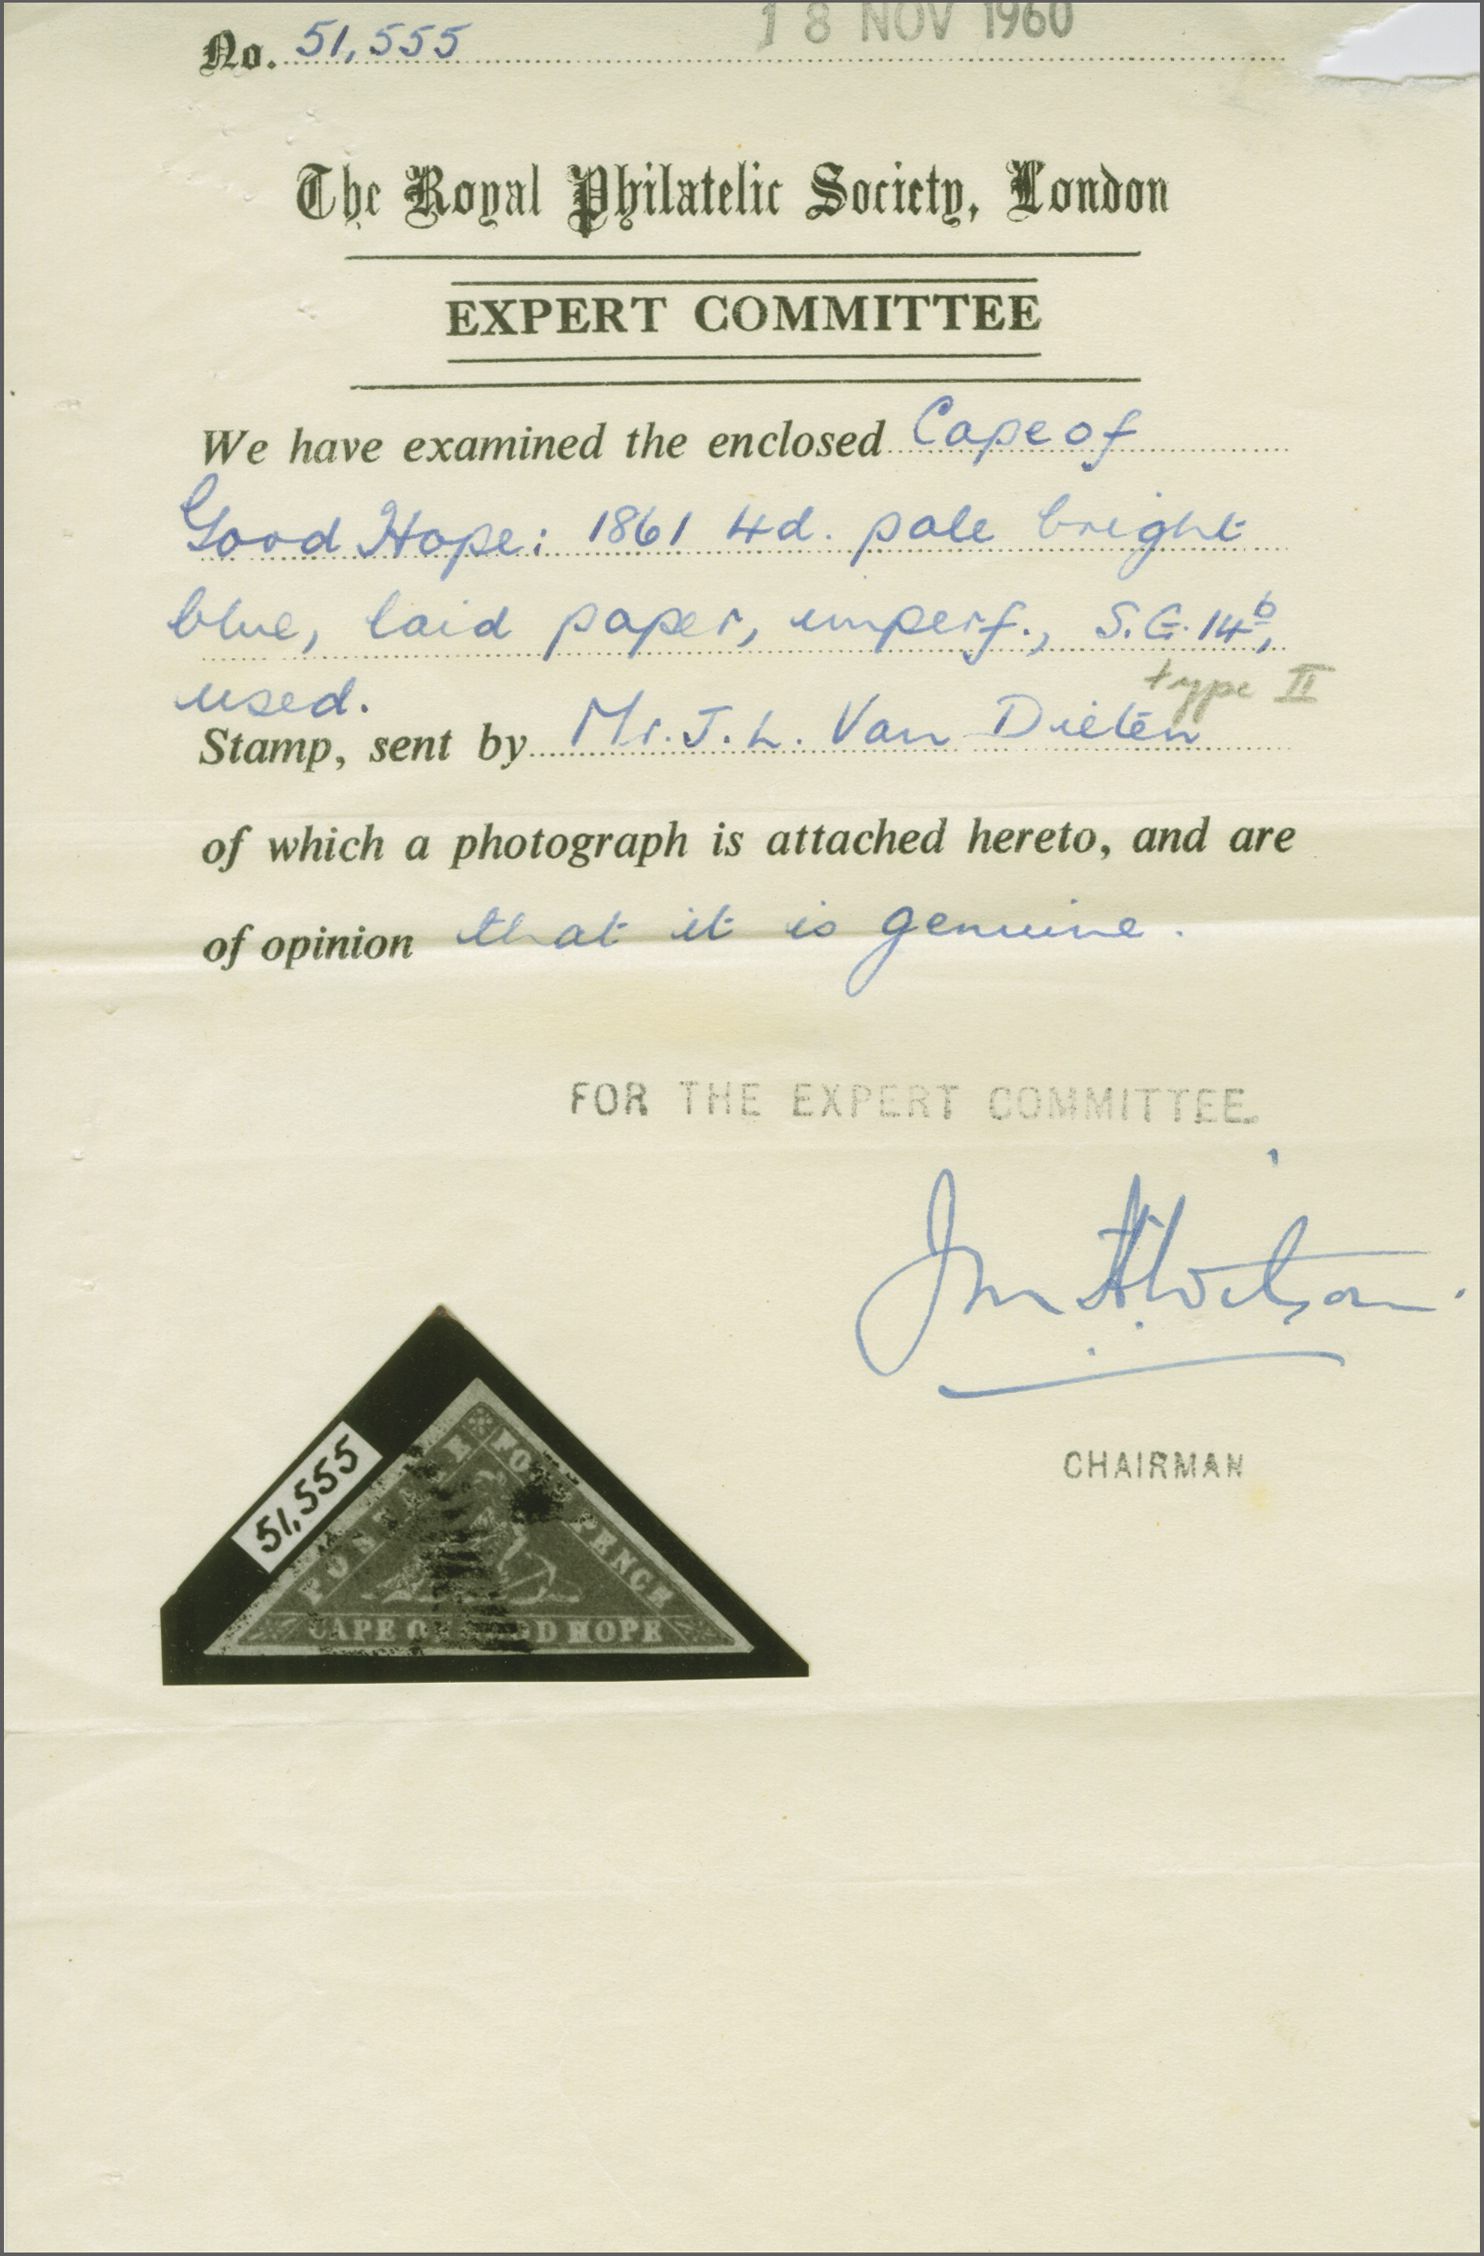 No. 51,555
18 NOV 1960
The Royal Philatelic Society, London
EXPERT COMMITTEE
We have examined the enclosed Cape of
Good Hope: 1861 4d. pale bright
blue, laid paper, imperf., S.G. 14b,
used.
type II
Stamp, sent by Mr. J. L. Van Dieten
of which a photograph is attached hereto, and are
of opinion that it is genuine.
FOR THE EXPERT COMMITTEE.
CHAIRMAN
51,555
POSTAGE
FOUR PENCE
CAPE OF GOOD HOPE